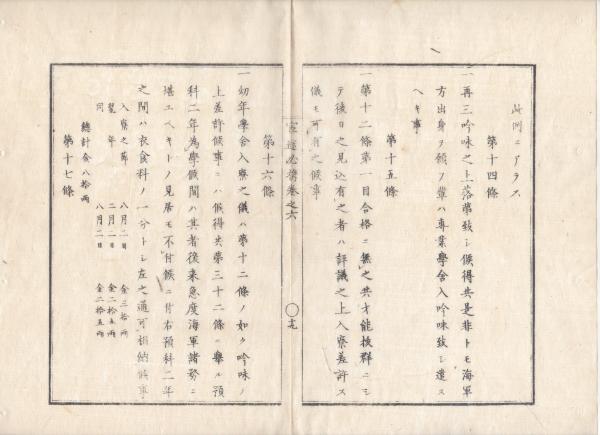 此例ニアラス
第十四條
一再三吟味之上落第致シ候得共是非トモ海軍
方出身ヲ願フ輩ハ專業學舍入吟味致シ遣ス
ヘキ事
第十五條
一第十二條第一目合格ニ無之共才能拔群ニシ
テ後日之見込有之者ハ評議之上入寮差許ス
儀モ可有之候事
官途必携卷之六
〇十九
第十六條
一幼年學舍入寮之儀ハ第十二條ノ如ク吟味ノ
上差許候事ニハ候得共第三十二條ニ擧ル預
科二年為學候間ハ其者後来急度海軍諸務ニ
堪エヘキトノ見居モ不付候ニ付右預科二年
之間ハ衣食料ノ一分トシ左之通可相納候事
入寮之節 八月二日 金三拾兩
翌年 二月二日 金二拾五兩
同 八月二日 金二拾五兩
總計金八拾兩
第十七條